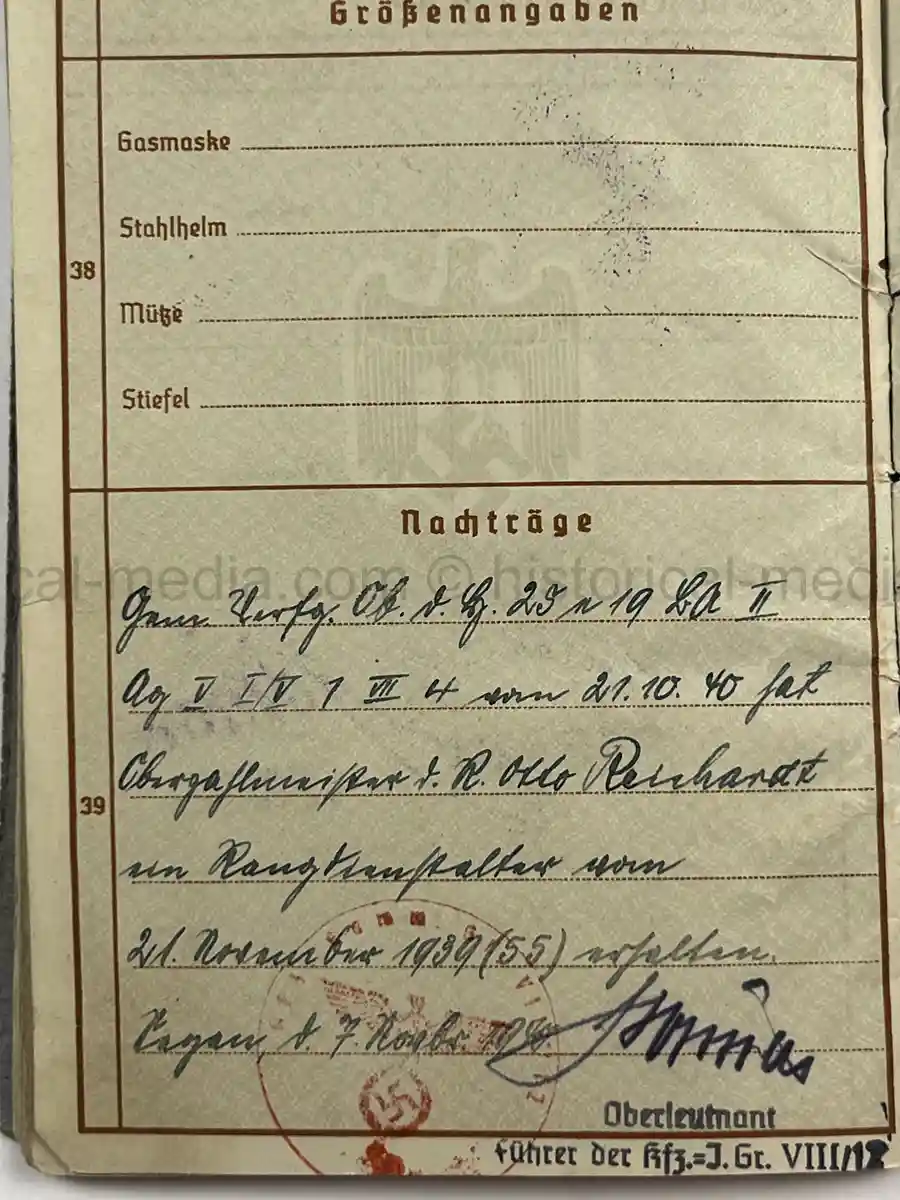 Größenangaben
38
Gasmaske
Stahlhelm
Mütze
Stiefel
Nachträge
cal-media.com © historical-medi
39
Gem. Verfg. Ob. d. H. 25 e 19 BA II
Ag V I/V 1 VII 4 vom 21.10.40 hat
Oberzahlmeister d. R. Otto Reinhardt
ein Rangdienstalter vom
21. November 1939 (55) erhalten.
d. 7. Novbr. 1940
Oberleutnant
Führer der Kfz.=J. Gr. VIII/